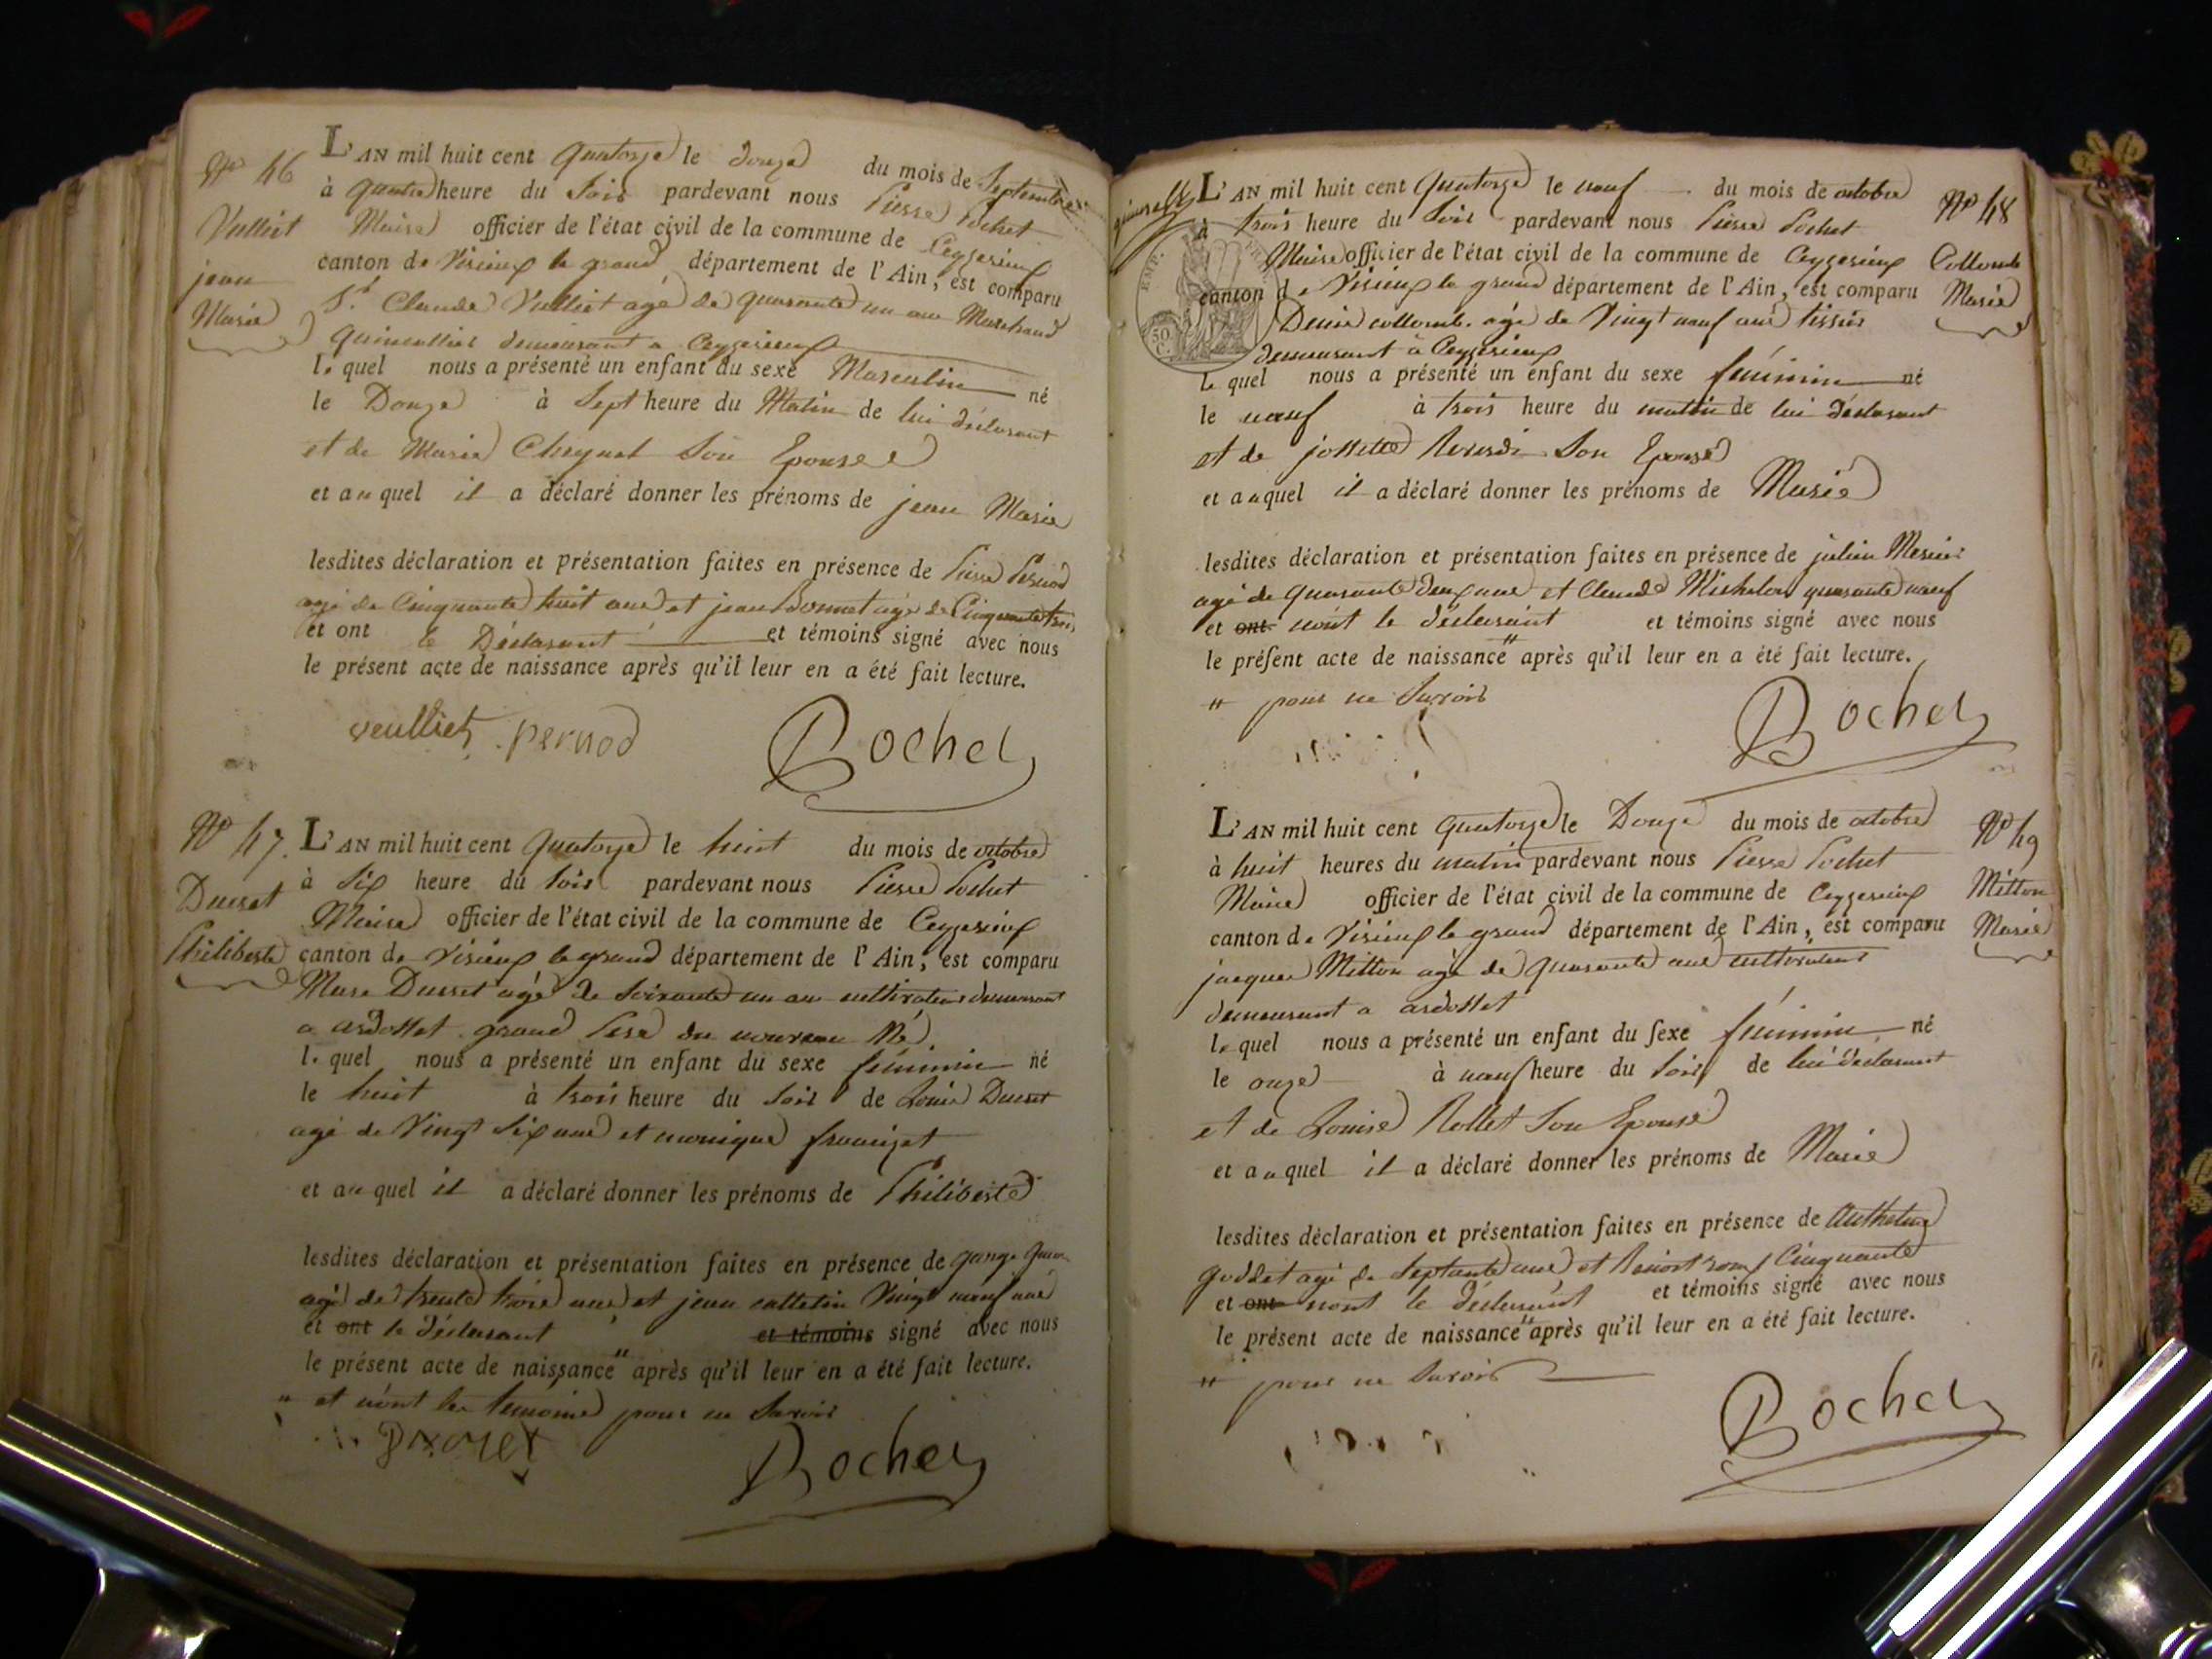 Nº 46
Vulliet
jean
Marie
L'AN mil huit cent quatorze le douze du mois de Septembre
à quatre heure du Soir pardevant nous Pierre Pochet
Maire officier de l'état civil de la commune de Ceyzerieux
canton de Virieux le grand département de l'Ain, est comparu
Sr. Claude Vulliet agé de quarante un ans Marchand
Quincallier demeurant a Ceyzerieux
le quel nous a présenté un enfant du sexe Masculin né
le Douze à Sept heure du Matin de lui déclarant
et de Marie Son Epouse
et au quel il a déclaré donner les prénoms de jean Marie
lesdites déclaration et présentation faites en présence de Pierre Pernod
agé de Cinquante huit ans et jean Bonnet agé de Cinquante trois
et ont le Déclarant et témoins signé avec nous
le présent acte de naissance après qu'il leur en a été fait lecture.
veulliet pernod Pochet
Nº 47.
Ducret
Philiberte
L'AN mil huit cent quatorze le huit du mois de octobre
à Six heure du Soir pardevant nous Pierre Pochet
Maire officier de l'état civil de la commune de Ceyzerieux
canton de Virieux le grand département de l'Ain, est comparu
Marc Ducret agé de Soixante un ans cultivateur demeurant
a ardosset grand Pere du nouveau Né
le quel nous a présenté un enfant du sexe féminin né
le huit à trois heure du Soir de Louis Ducret
agé de Vingt Six ans et monique
et au quel il a déclaré donner les prénoms de Philiberte
lesdites déclaration et présentation faites en présence de
agé de trente trois ans et jean Vingt neuf ans
et ont le déclarant et témoins signé avec nous
le présent acte de naissance" après qu'il leur en a été fait lecture.
" et n'ont les temoins pour ne Savoir
Pochet
L'AN mil huit cent quatorze le neuf du mois de octobre
à trois heure du Soir pardevant nous Pierre Pochet
Maire officier de l'état civil de la commune de Ceyzerieux
canton de Virieux le grand département de l'Ain, est comparu
Denis collomb. agé de Vingt neuf ans tissier
demeurant à Ceyzerieux
Nº 48
Collomb
Marie
EMP. FRAN.
50 C.
le quel nous a présenté un enfant du sexe féminin né
le neuf à trois heure du matin de lui déclarant
et de josette Son Epouse
et au quel il a déclaré donner les prénoms de Marie
lesdites déclaration et présentation faites en présence de julien Mercier
agé de quarante deux ans et Claude Michelon quarante neuf
et ont n'ont le déclarant et témoins signé avec nous
le présent acte de naissance" après qu'il leur en a été fait lecture.
" pour ne Savoir
Pochet
L'AN mil huit cent quatorze le Douze du mois de octobre
à huit heures du matin pardevant nous Pierre Pochet
Maire officier de l'état civil de la commune de Ceyzerieux
canton de Virieux le grand département de l'Ain, est comparu
jacques Mitton agé de quarante ans cultivateur
demeurant a ardosset
Nº 49
Mitton
Marie
le quel nous a présenté un enfant du sexe féminin né
le onze à neuf heure du Soir de lui déclarant
et de Louise Rollet Son Epouse
et au quel il a déclaré donner les prénoms de Marie
lesdites déclaration et présentation faites en présence de Anthelme
goddet agé de Septante ans et Cinquante
et ont n'ont le déclarant et témoins signé avec nous
le présent acte de naissance" après qu'il leur en a été fait lecture.
" pour ne Savoir
Pochet